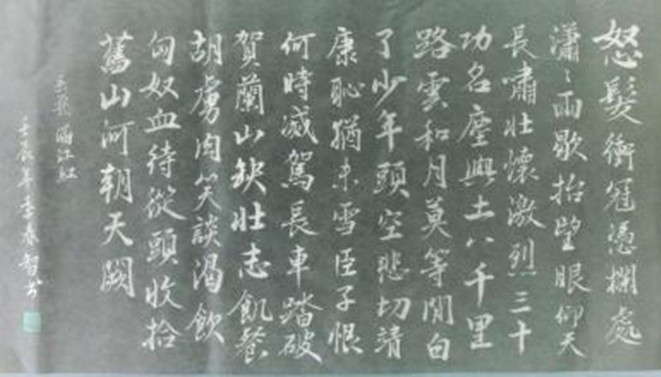 怒髮衝冠憑欄處
瀟〻雨歇抬望眼仰天
長嘯壯懷激烈三十
功名塵與土八千里
路雲和月莫等閒白
了少年頭空悲切靖
康恥猶未雪臣子恨
何時滅駕長車踏破
賀蘭山缺壯志飢餐
胡虜肉笑談渴飲
匈奴血待從頭收拾
舊山河朝天闕
岳飛滿江紅
壬辰年季春智書